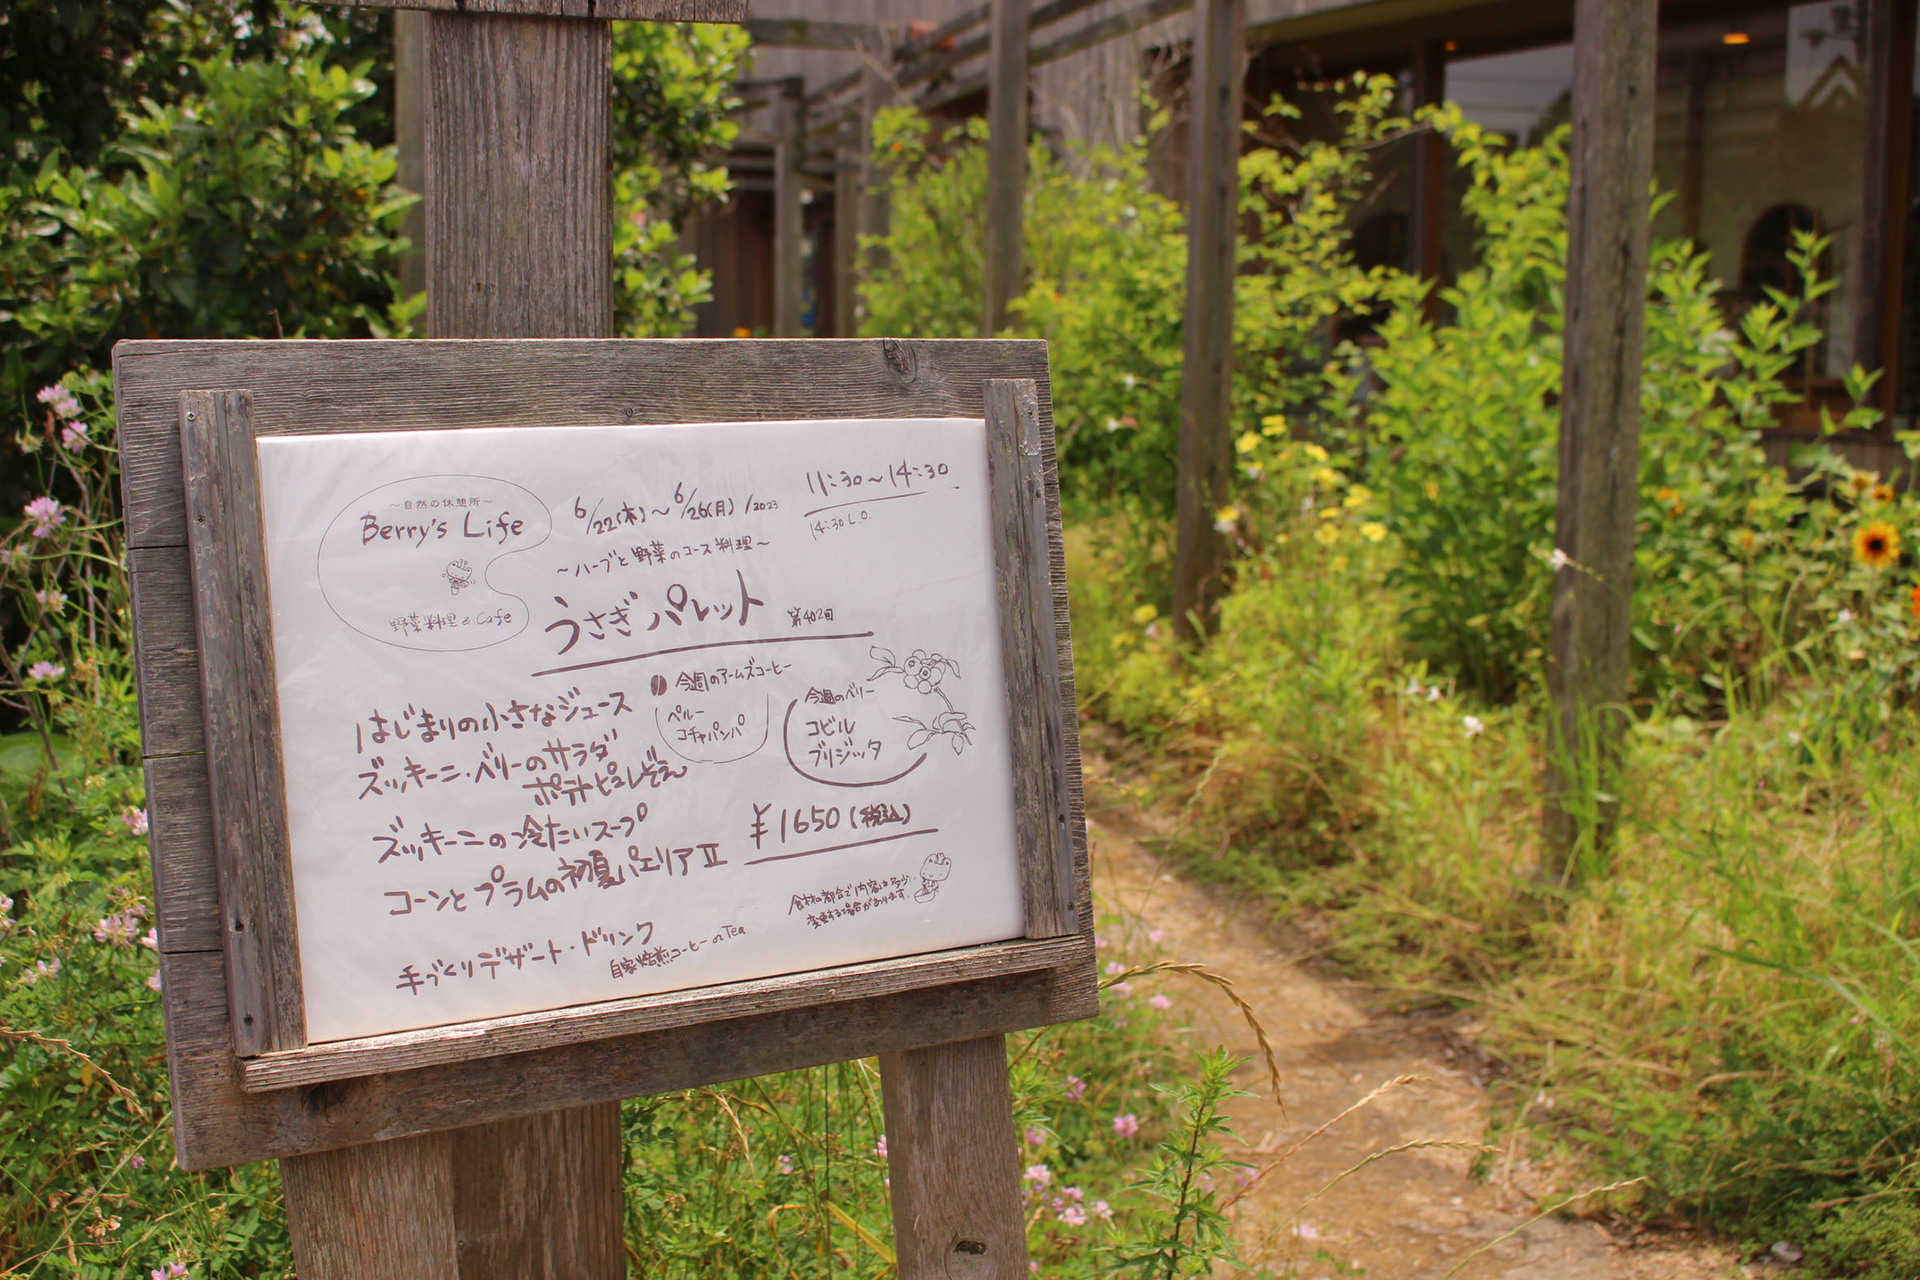 ~自然の休憩所~
Berry's Life
野菜料理 & Cafe
6/22(木)~6/26(月) /2023
11:30~14:30
14:30 L.O.
~ハーブと野菜のコース料理~
うさぎパレット 第402回
はじまりの小さなジュース
ズッキーニ・ベリーのサラダ
ポテトピュレぞえ
ズッキーニの冷たいスープ
コーンとプラムの初夏パエリアⅡ
手づくりデザート・ドリンク
自家焙煎コーヒー or Tea
今週のアームズコーヒー
ペルー
コチャパンパ
今週のベリー
コビル
ブリジッタ
¥1650(税込)
食材の都合で内容は多少
変更する場合があります。